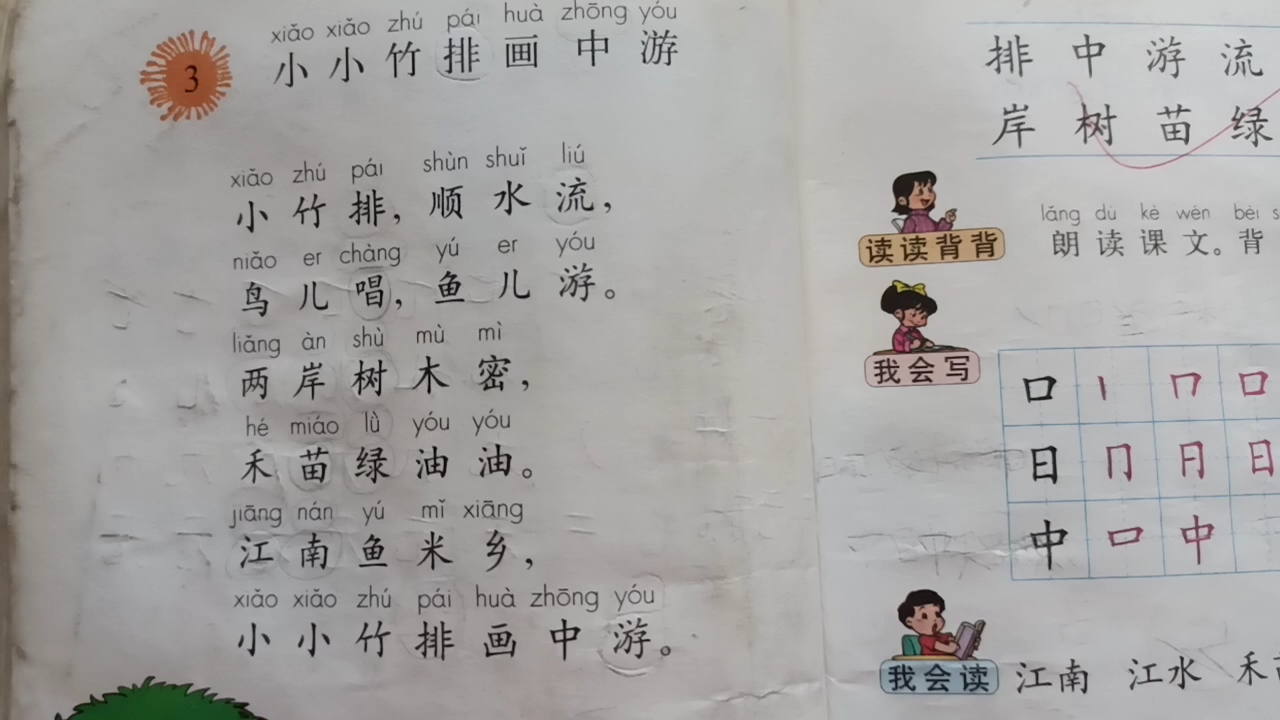 3
xiǎo xiǎo zhú pái huà zhōng yóu
小小竹排画中游
xiǎo zhú pái shùn shuǐ liú
小竹排，顺水流，
niǎo er chàng yú er yóu
鸟儿唱，鱼儿游。
liǎng àn shù mù mì
两岸树木密，
hé miáo lǜ yóu yóu
禾苗绿油油。
jiāng nán yú mǐ xiāng
江南鱼米乡，
xiǎo xiǎo zhú pái huà zhōng yóu
小小竹排画中游。
排中游流
岸树苗绿
读读背背
lǎng dú kè wén bèi
朗读课文。背
我会写
口
日
中
我会读
江南 江水 禾